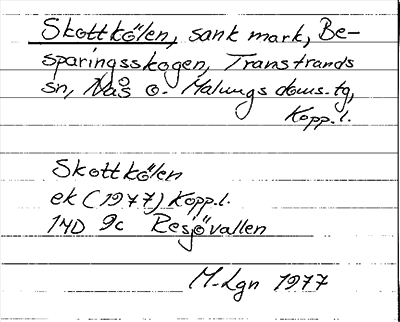 Skottkölen, sank mark, Be-
sparingsskogen, Transtrands
sn, Nås o. Malungs doms.tg,
Kopp.l.
Skottkölen
ek (1977) Kopp.l.
14D 9c Resjövallen
M-Lgn 1977